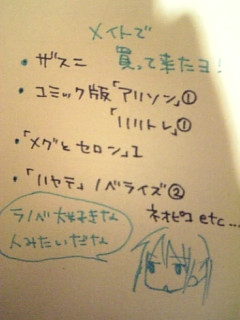 メイトで
買って来たヨ!
・ザスニ
・コミック版「アリソン」①
「リリトレ」①
・「メグとセロン」1
・「ハヤテ」ノベライズ②
ネオピコetc…
ラノベ大好きな
人みたいだな